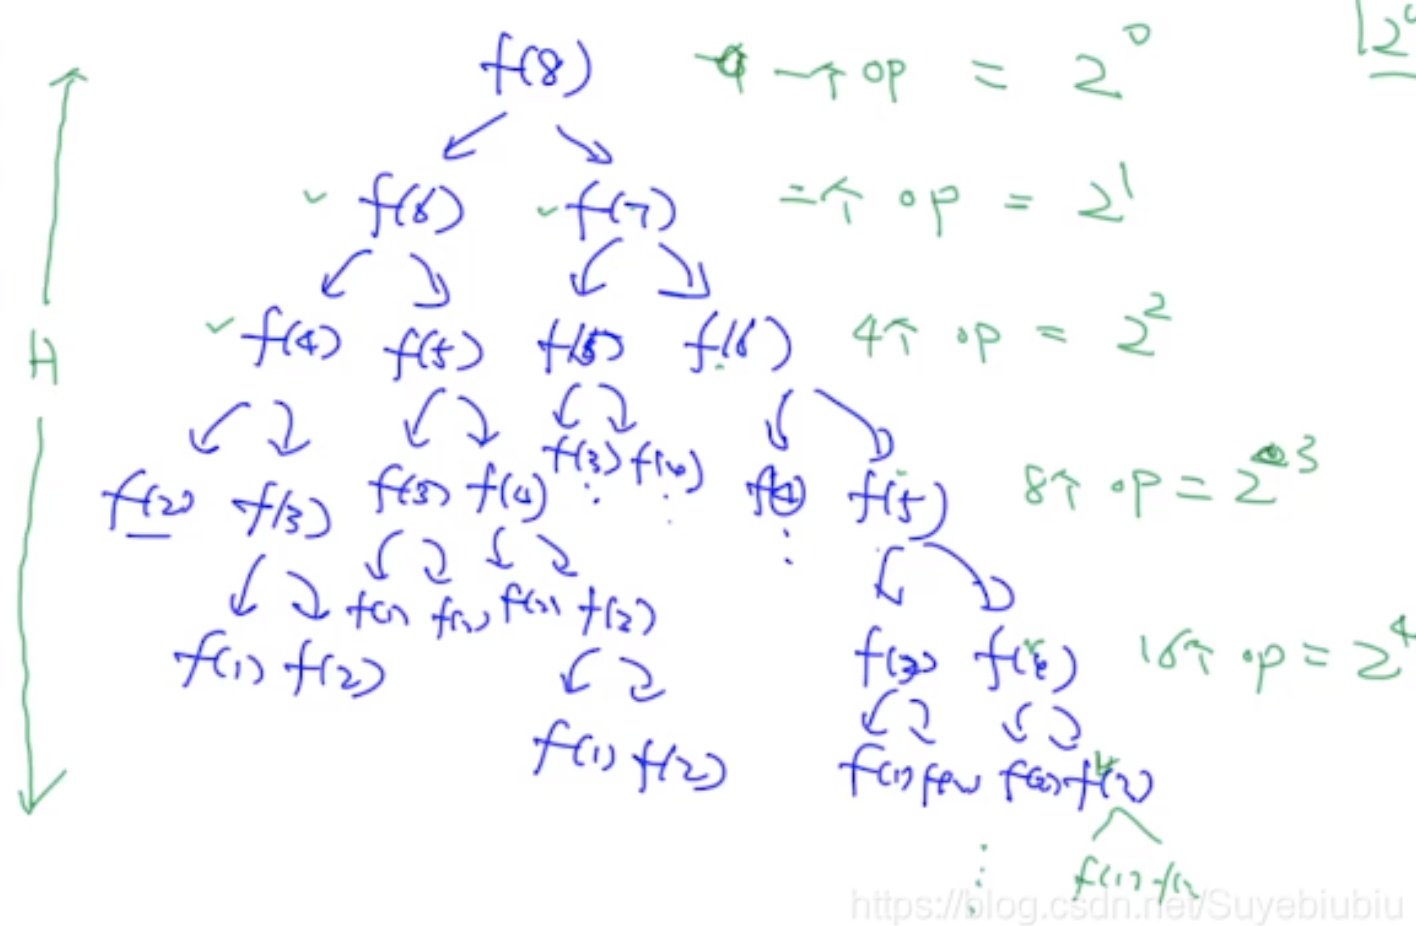 f(8) 一个 op = 2^0
f(6) f(7) 二个 op = 2^1
f(4) f(5) f(5) f(6) 4个 op = 2^2
f(3) f(4)
f(2) f(3) f(3) f(4) f(4) f(5) 8个 op = 2^3
H
f(2)
f(1) f(2) f(3) 16个 op = 2^4
f(1) f(2) f(1)
f(1)
https://blog.csdn.net/Suyebiubiu